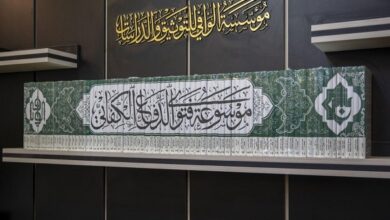 مؤسسة الوافي للتوثيق والدراسات
موسوعة فتوى الدفاع الكفائي